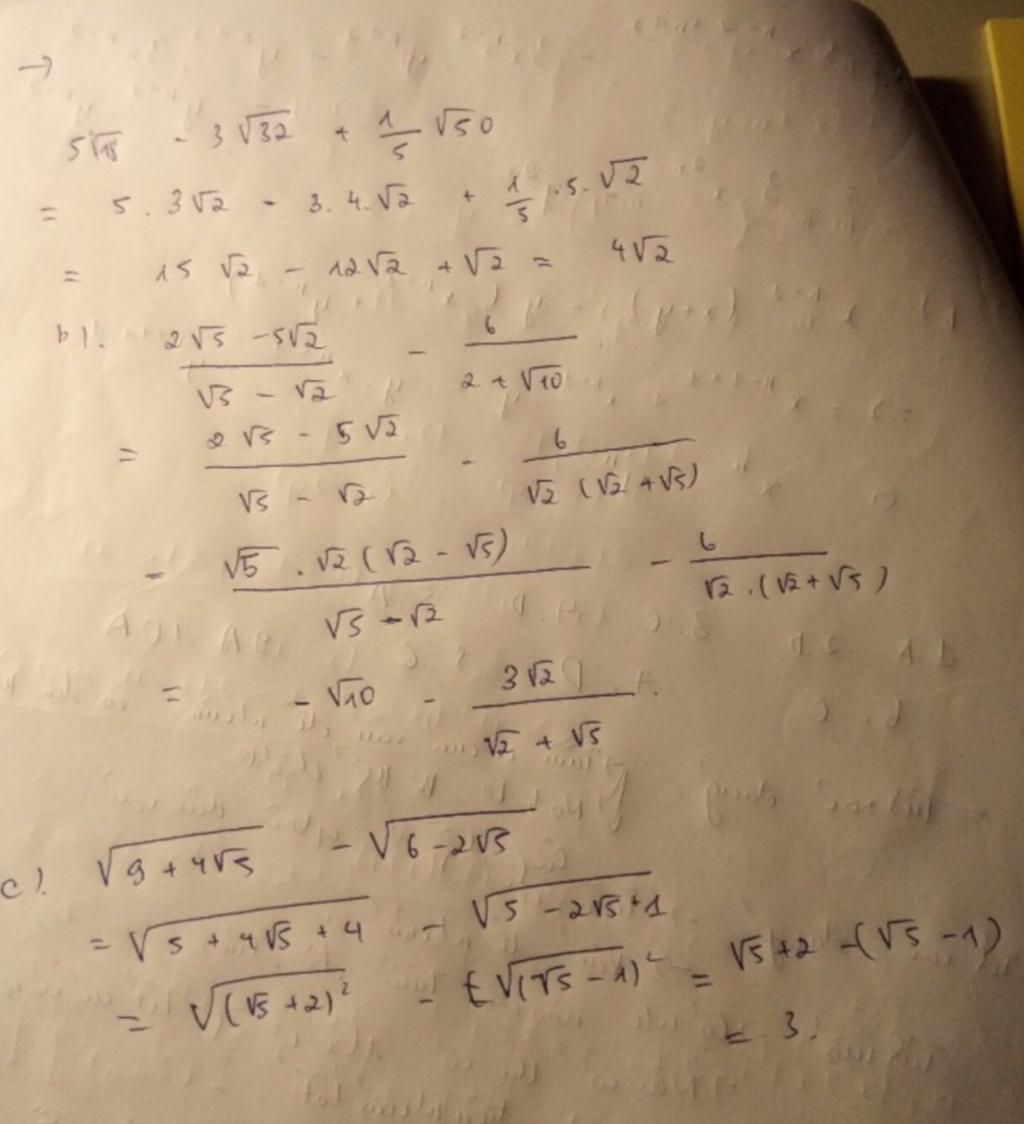 →
5√18 - 3√32 + 1/5 √50
= 5 . 3√2 - 3. 4. √2 + 1/5 . 5. √2
= 15 √2 - 12√2 + √2 = 4√2
b). (2√5 - 5√2)/(√5 - √2) - 6/(2 + √10)
= (2√5 - 5√2)/(√5 - √2) - 6/(√2 (√2 + √5))
= (√5 . √2 (√2 - √5))/(√5 - √2) - 6/(√2 . (√2 + √5))
= - √10 - 3√2/(√2 + √5).
c). √(9 + 4√5) - √(6 - 2√5)
= √(5 + 4√5 + 4) - √(5 - 2√5 + 1)
= √((√5 + 2)²) - √((√5 - 1)²) = √5 + 2 - (√5 - 1)
= 3.